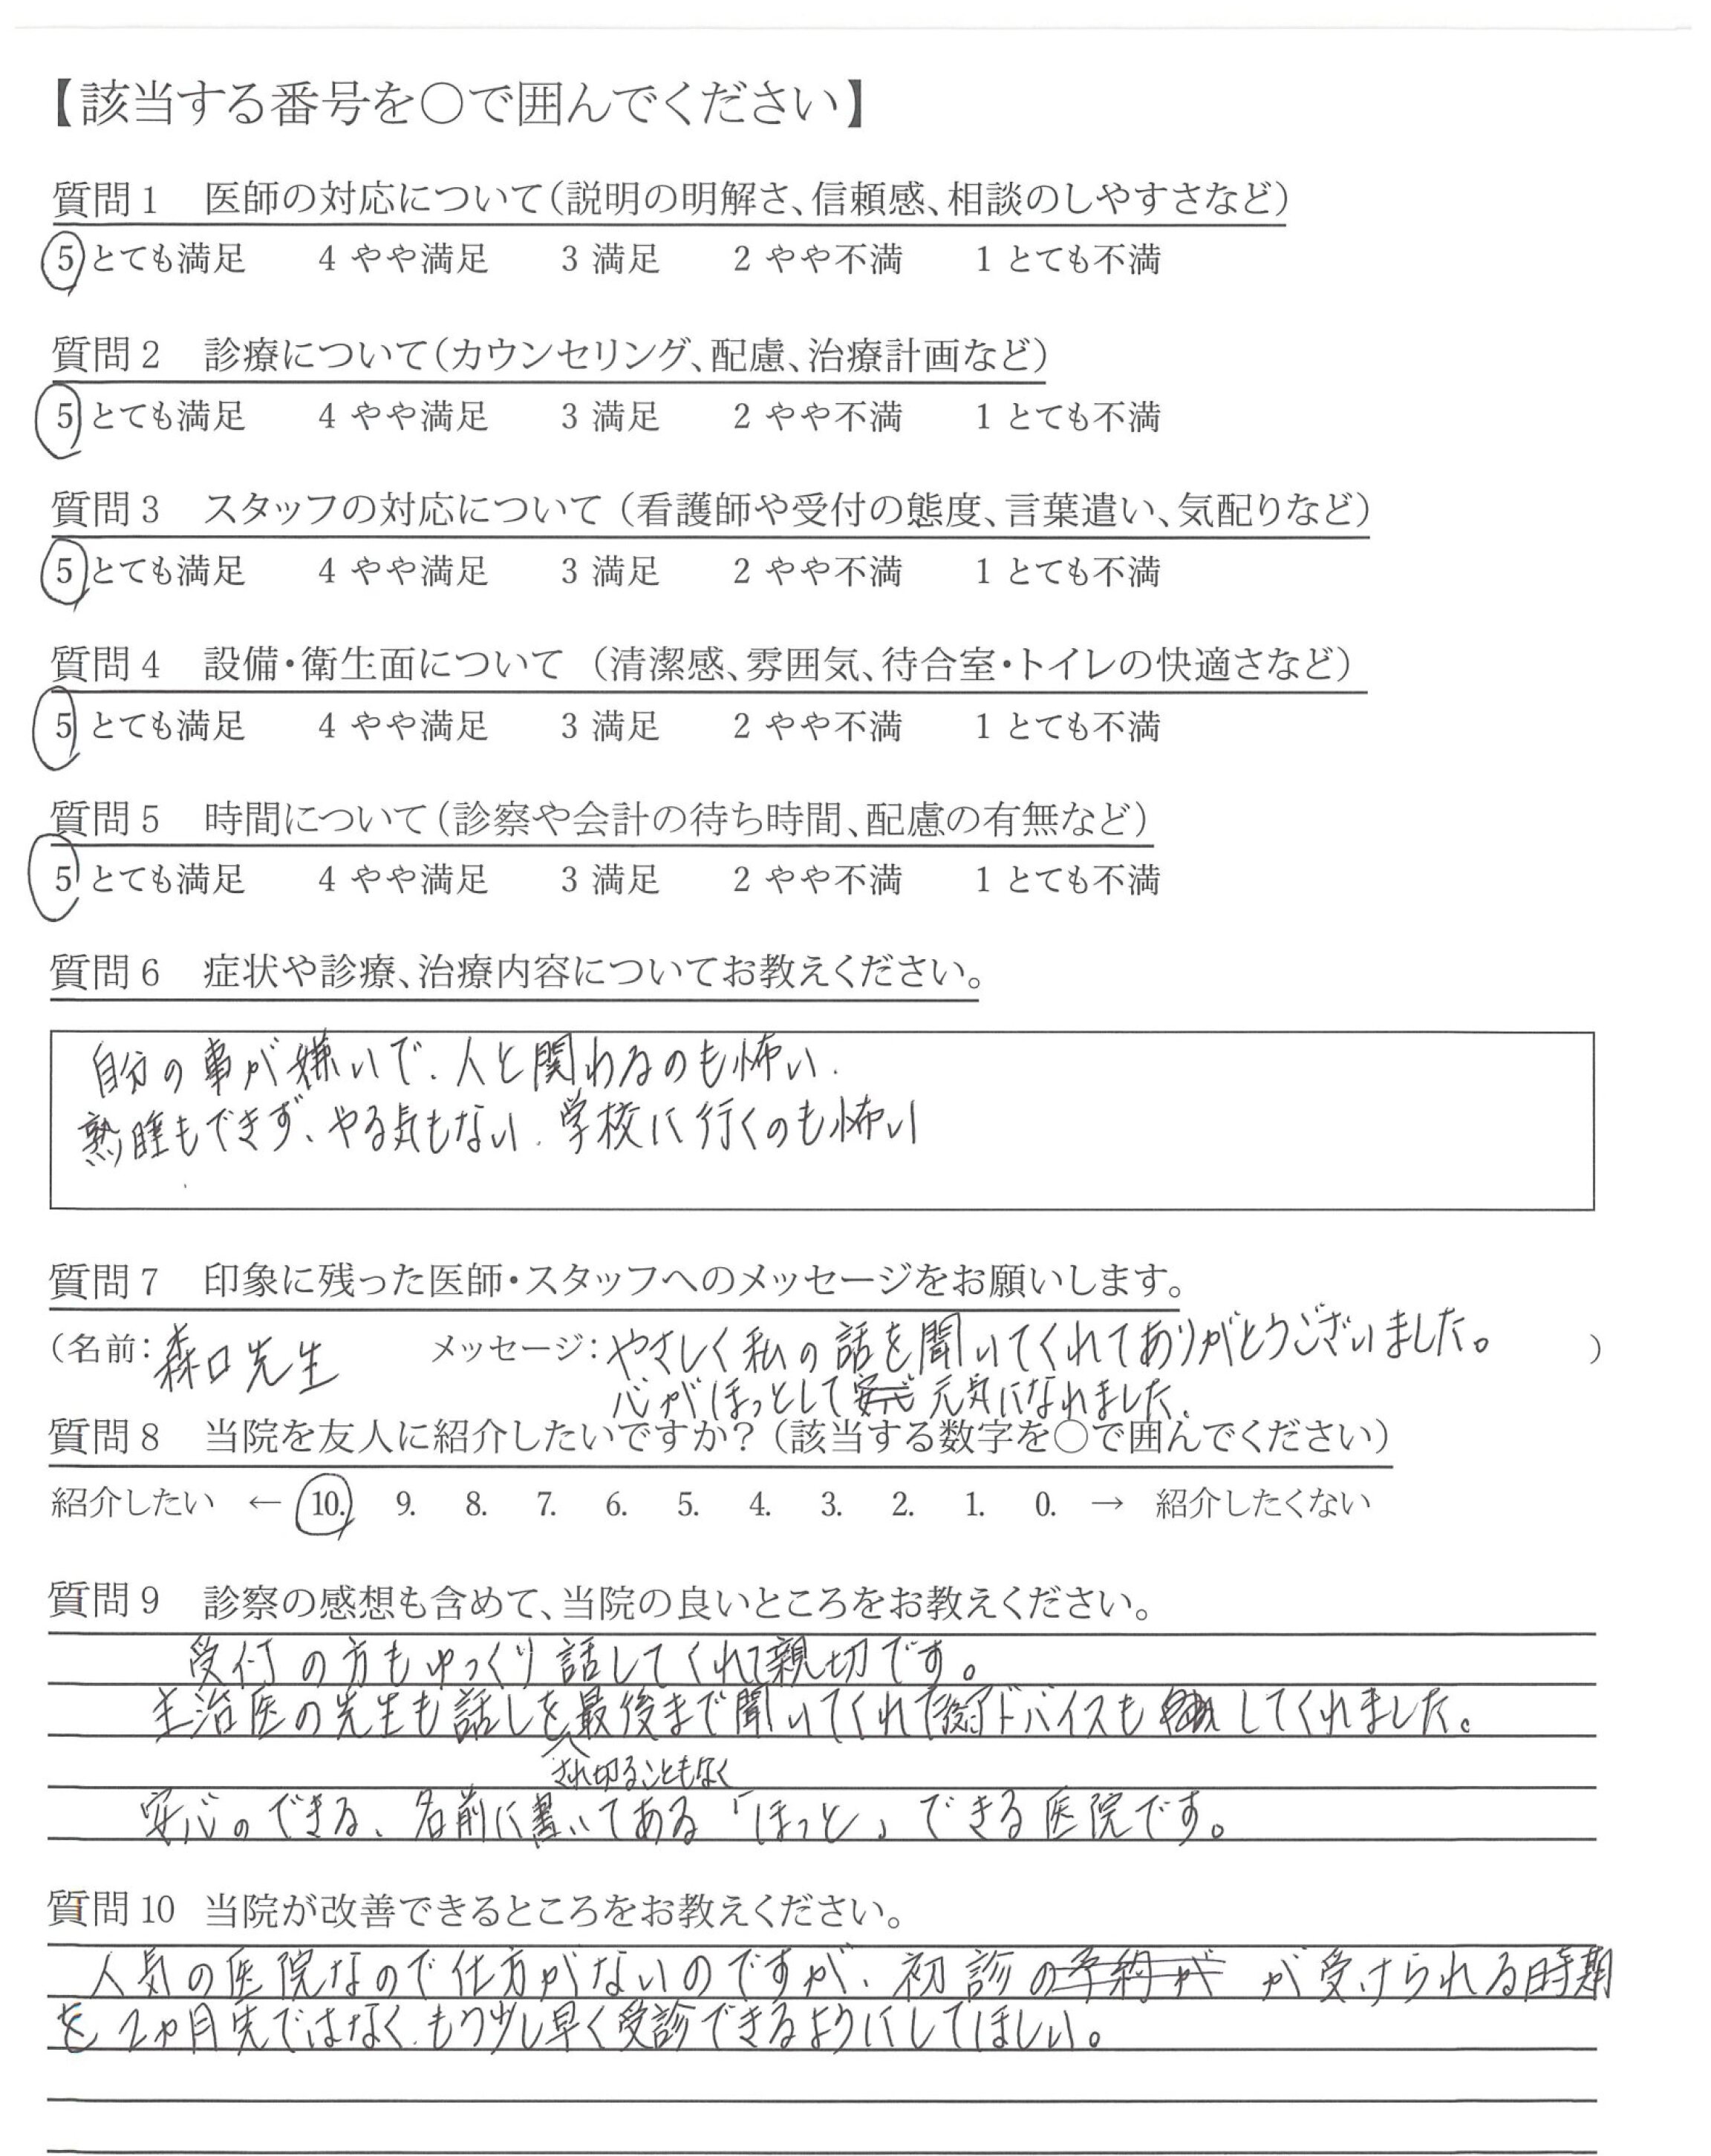 【該当する番号を○で囲んでください】
質問1 医師の対応について(説明の明解さ、信頼感、相談のしやすさなど)
5 とても満足 4 やや満足 3 満足 2 やや不満 1 とても不満
質問2 診療について(カウンセリング、配慮、治療計画など)
5 とても満足 4 やや満足 3 満足 2 やや不満 1 とても不満
質問3 スタッフの対応について (看護師や受付の態度、言葉遣い、気配りなど)
5 とても満足 4 やや満足 3 満足 2 やや不満 1 とても不満
質問4 設備・衛生面について (清潔感、雰囲気、待合室・トイレの快適さなど)
5 とても満足 4 やや満足 3 満足 2 やや不満 1 とても不満
質問5 時間について(診察や会計の待ち時間、配慮の有無など)
5 とても満足 4 やや満足 3 満足 2 やや不満 1 とても不満
質問6 症状や診療、治療内容についてお教えください。
自分の事が嫌いで、人と関わるのも怖い.
熟睡もできず、やる気もない.学校に行くのも怖い
質問7 印象に残った医師・スタッフへのメッセージをお願いします。
(名前:森口先生 メッセージ:やさしく私の話を聞いてくれてありがとうございました。 )
心がほっとして 元気になれました.
質問8 当院を友人に紹介したいですか? (該当する数字を○で囲んでください)
紹介したい ← 10. 9. 8. 7. 6. 5. 4. 3. 2. 1. 0. → 紹介したくない
質問9 診察の感想も含めて、当院の良いところをお教えください。
受付の方もゆっくり話してくれて親切です。
主治医の先生も話しを最後まで聞いてくれて アドバイスも してくれました。
さえ切ることもなく
安心のできる、名前に書いてある「ほっと」できる医院です。
質問10 当院が改善できるところをお教えください。
人気の医院なので仕方がないのですが、初診の予約が が受けられる時期
を2ヵ月先ではなく、もう少し早く受診できるようにしてほしい。